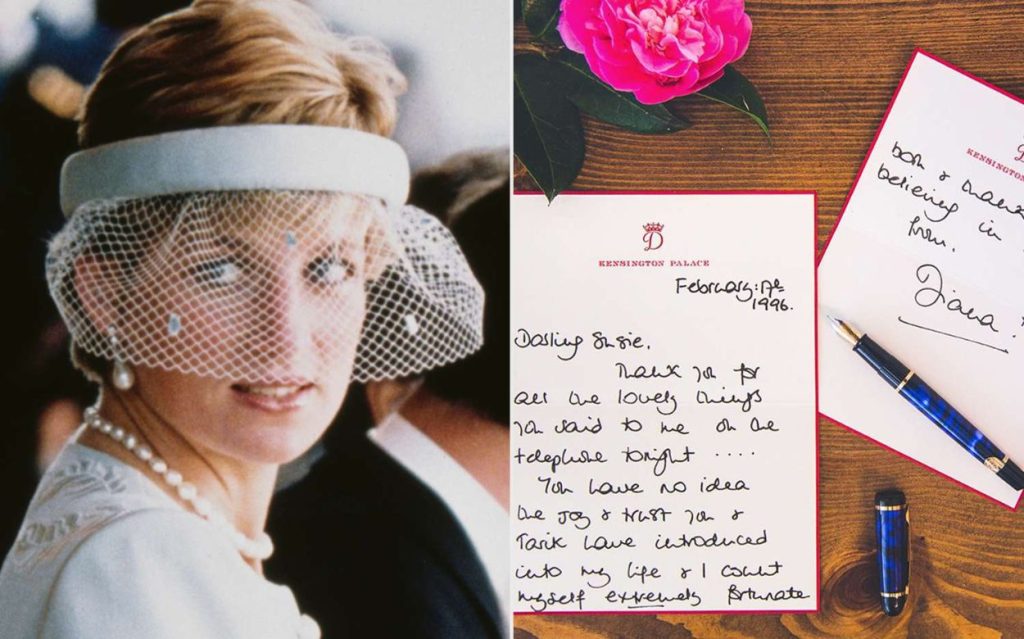 D
KENSINGTON PALACE
February: 17th
1996.
Darling Susie,
Thank you for
all the lovely things
you said to me on the
telephone tonight ....
You have no idea
the joy & trust you &
Tarik have introduced
into my life & I count
myself extremely fortunate
D
KENSINGTON
both & thank
believing in
from.
Diana